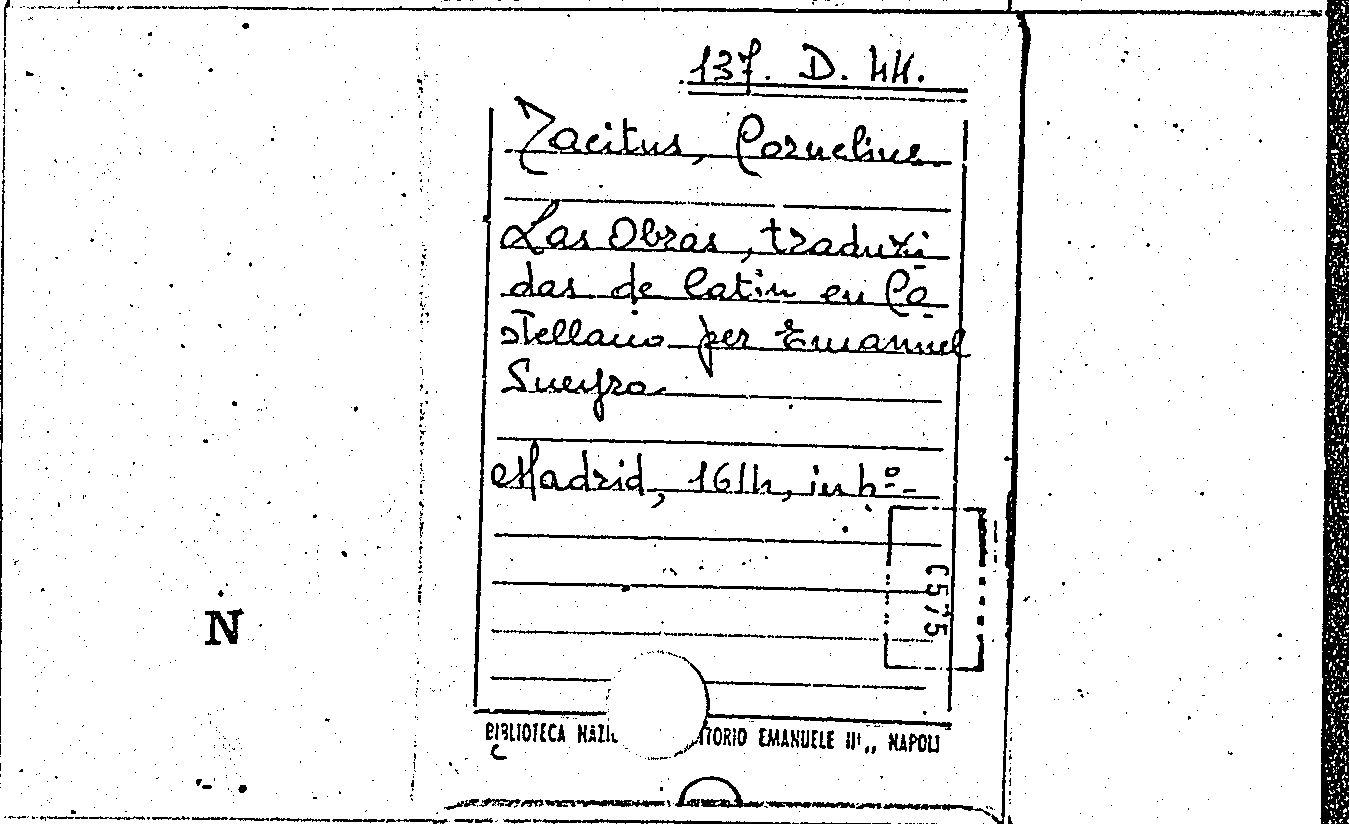 137. D. 44.
Tacitus, Cornelius
Las Obras, traduzi
das de latin en Ca
stellano per Emanuel
Sueyro
Madrid, 1614, in 4º
C575
N
BIBLIOTECA NAZI ITTORIO EMANUELE III,, NAPOLI
C